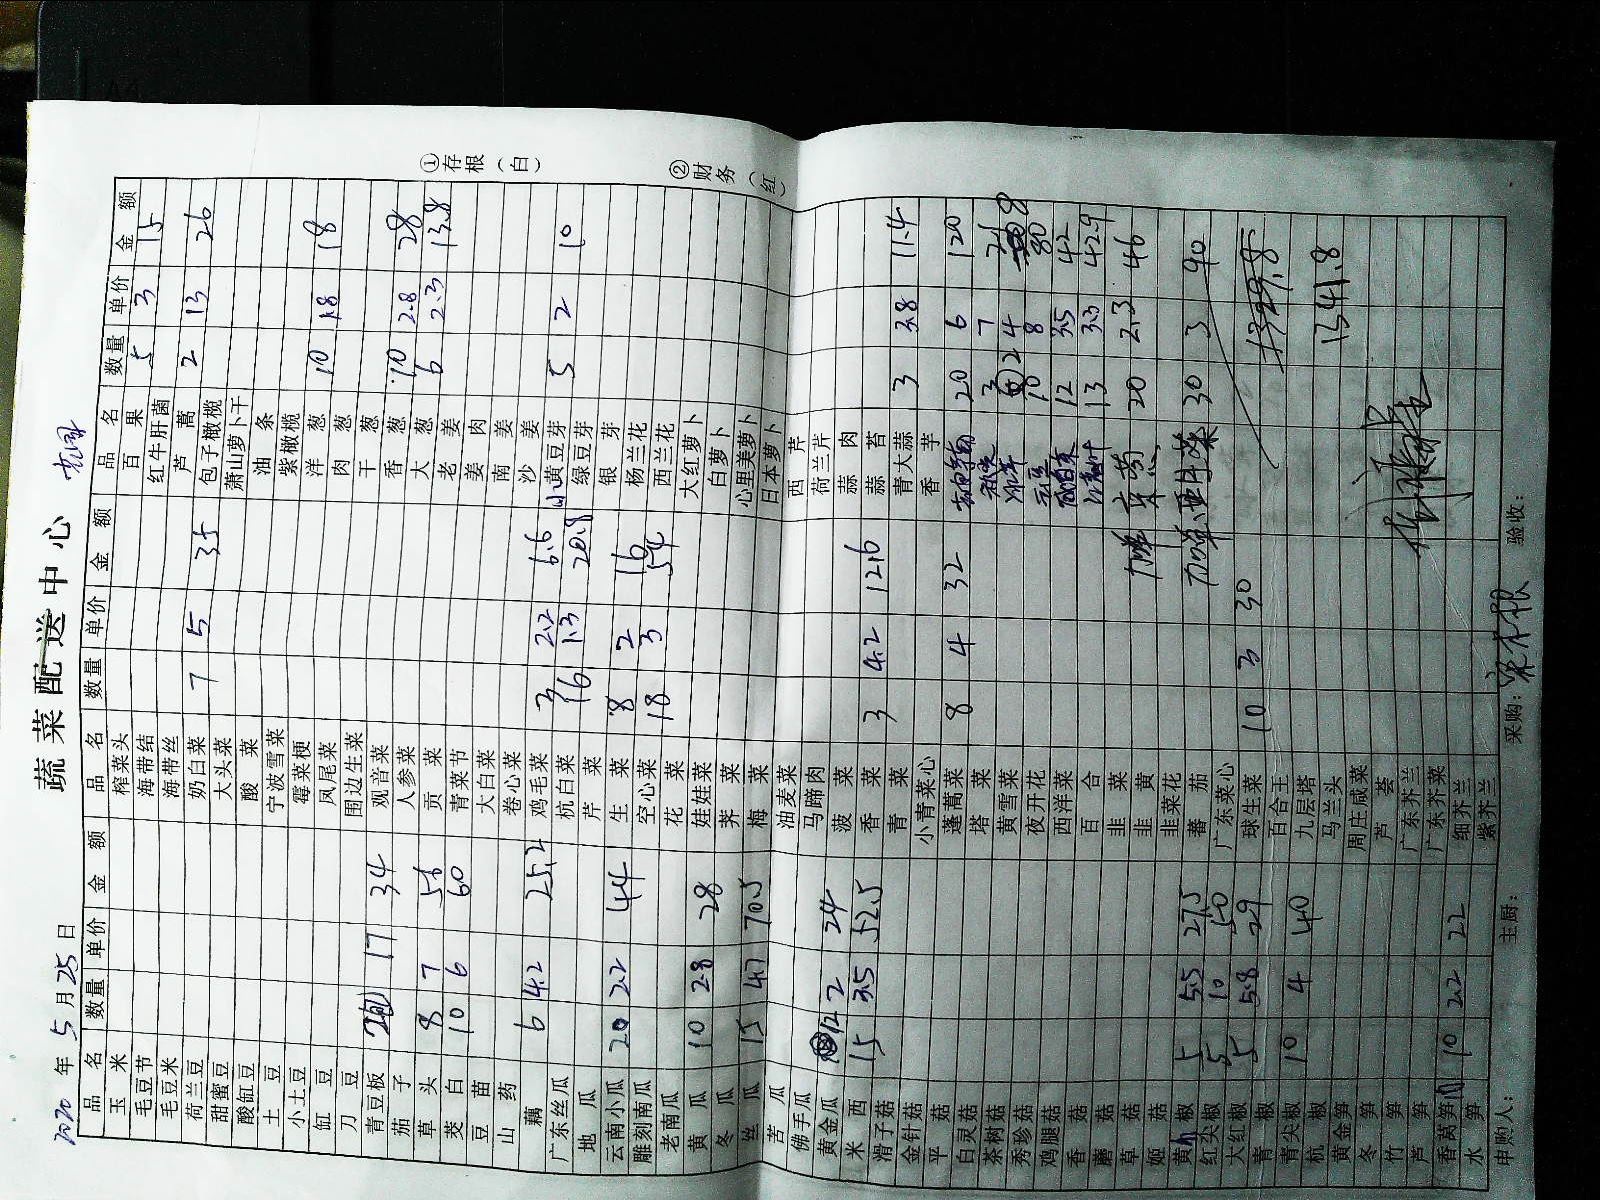 蔬菜配送中心
2020年5月25日
品名 数量 单价 金额 品名 数量 单价 金额 品名 数量 单价 金额
玉米 榨菜头 百果 5 3 15
毛豆节 海带结 红牛肝菌
毛豆米 海带丝 芦蒿 2 13 26
荷兰豆 奶白菜 7 5 35 包子橄榄
甜蜜豆 大头菜 萧山萝卜干
酸缸豆 酸菜 油条
土豆 宁波雪菜 紫橄榄
小土豆 霉菜梗 洋葱 10 1.8 18
缸豆 凤尾菜 肉葱
刀豆 围边生菜 干葱
青豆板 2 17 34 观音菜 香葱 10 2.8 28
茄子 人参菜 大葱 6 2.3 13.8
草头 8 7 56 贡菜 老姜
茭白 10 6 60 青菜节 姜肉
豆苗 大白菜 南姜
山药 卷心菜 沙姜
藕 6 4.2 25.2 鸡毛菜 3 2.2 6.6 小黄豆芽 5 2 10
广东丝瓜 杭白菜 16 1.3 20.8 绿豆芽
地瓜 芹菜 银芽
云南小瓜 20 2.2 44 生菜 8 2 16 杨兰花
雕刻南瓜 空心菜 18 3 54 西兰花
老南瓜 花菜 大红萝卜
黄瓜 10 2.8 28 娃娃菜 白萝卜
冬瓜 荠菜 心里美萝卜
丝瓜 15 4.7 70.5 梅菜 日本萝卜
苦瓜 油麦菜 西芹
佛手瓜 马蹄肉 荷兰芹
黄金瓜 12 2 24 菠菜 蒜肉
米西 15 3.5 52.5 香菜 3 4.2 12.6 蒜苔
滑子菇 青菜 青大蒜 3 3.8 11.4
金针菇 小青菜心 香芋
平菇 蓬蒿菜 8 4 32 20 6 120
白灵菇 塔菜 3 7 21
茶树菇 黄雪菜 2 4 8
秀珍菇 夜开花 10 8 80
鸡腿菇 西洋菜 12 3.5 42
香菇 百合 13 3.3 42.9
蘑菇 韭菜 加单 20 2.3 46
草菇 韭黄
姬菇 韭菜花 加单 30 3 90
黄椒 5 5.5 27.5 蕃茄
红尖椒 5 10 50 广东菜心
大红椒 5 5.8 29 球生菜 10 3 30 1329.8
青椒 百合王
青尖椒 10 4 40 九层塔
杭椒 马兰头 1341.8
黄金笋 周庄咸菜
冬笋 芦荟
竹笋 广东芥兰
芦笋 广东芥菜
香莴笋 10 2.2 22 细芥兰
水笋 紫芥兰
申购人: 主厨: 采购: 验收:
①存根(白)
②财务(红)